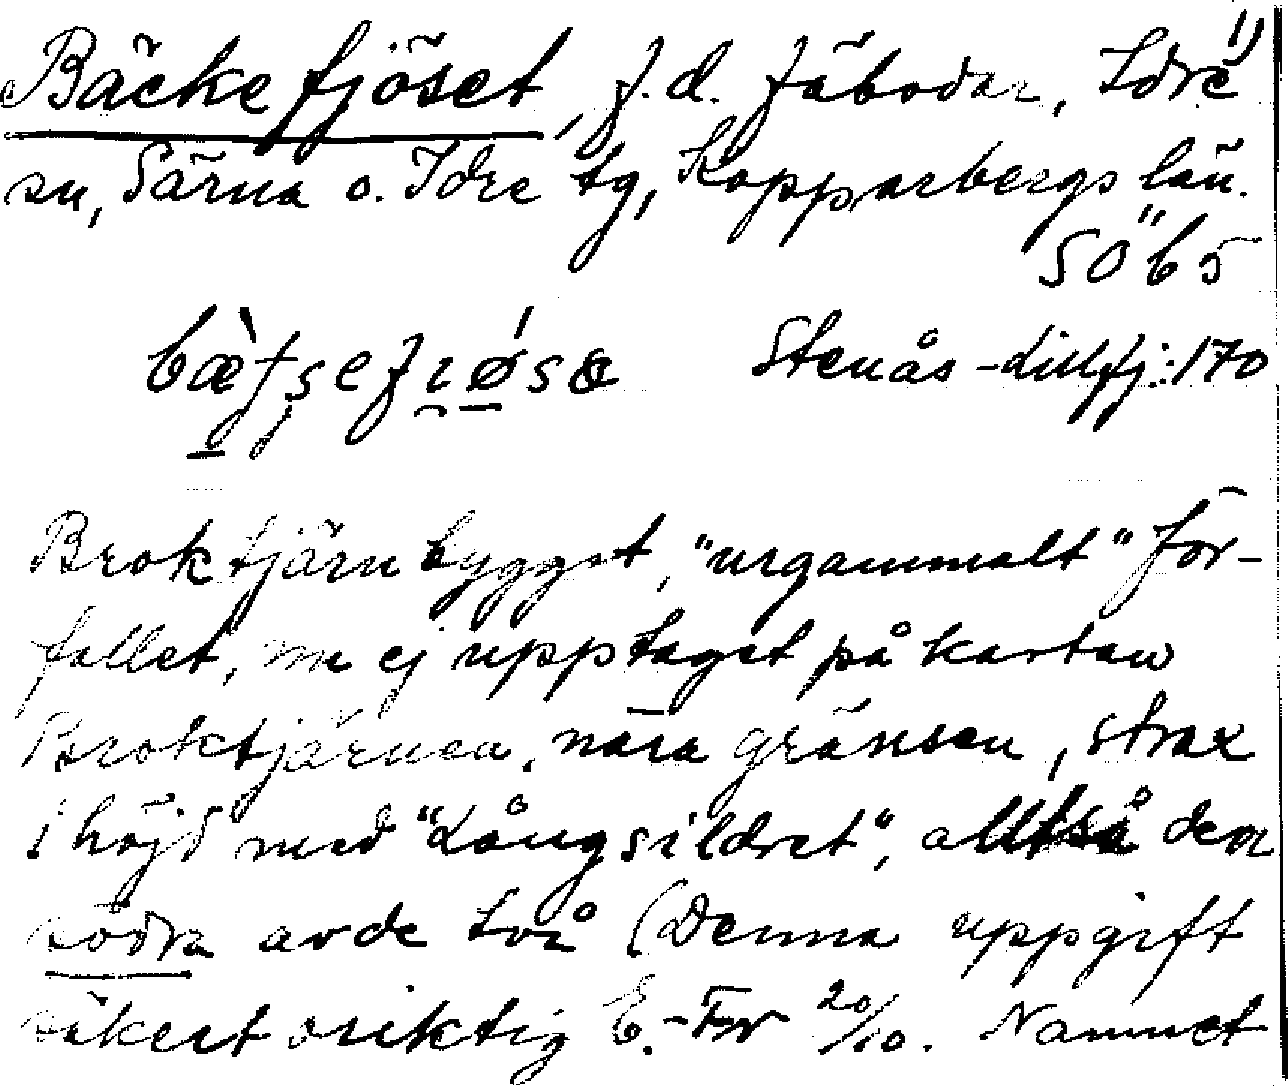 Bäckefjöset, f.d. fäbodar, Idre 1)
sn, Särna o. Idre tg, Kopparbergs län.
SÖ b 5
Stenås-Lillfj.:170
Broktjärnbygget, "urgammalt" för-
fallet, nu ej upptaget på kartan
Broktjärnea, nära gränsen, strax
i höjd med "Långsildret", alltså den
södra av de två (Denna uppgift
säkert oriktig E.-Fr 20/10. Namnet